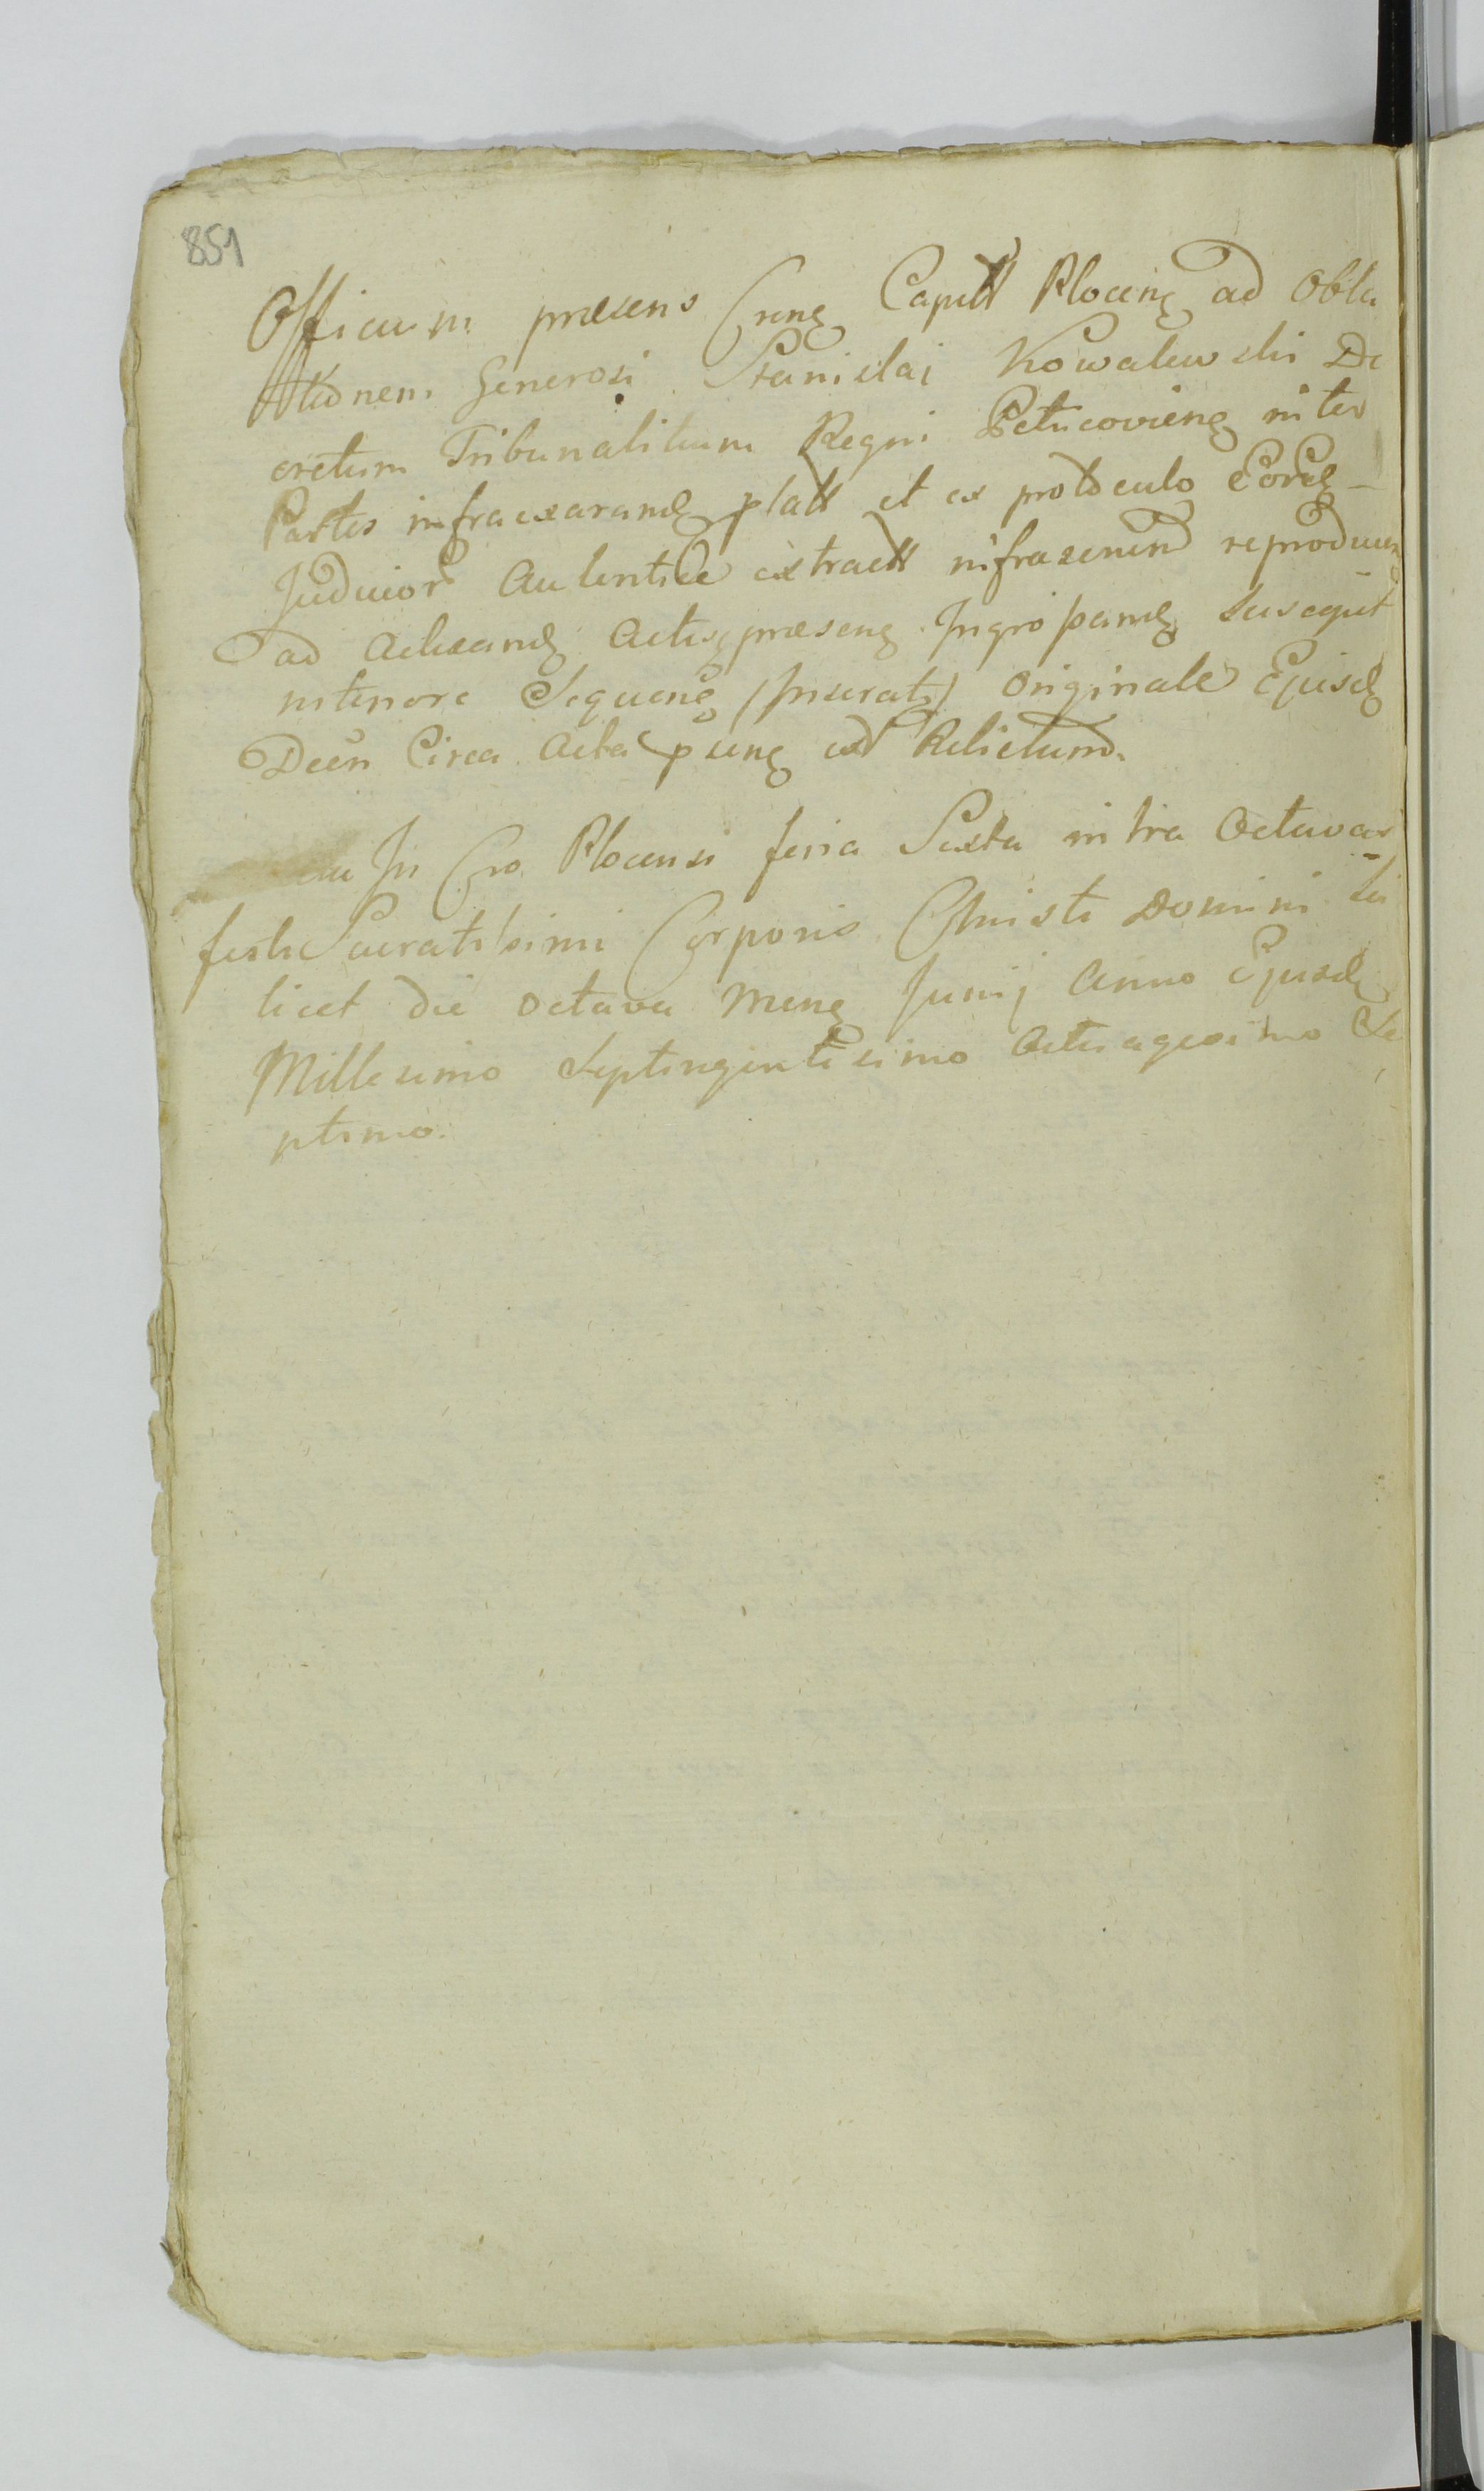 851
Officium præsens Crens Capitt Plocens ad Obla
ttionem Generosi Stanislai Kowalewski De
cretum Tribunalitium Regni Petricoviens inter
Partes infraexarands platt et ex prothoculo Eords
Judicior Autentice extractt infrascrium reproducens
ad acticands Actisq præsens Ingrossands suscepit
in tenore Sequens (Inserats) Originale Ejusds
Decti Circa Acta psens est Relictum.
In Cro Plocensi feria Sexta intra Octavas
festi Sacratissimi Corporis Christi Domini sci
licet die octava Mens Junij Anno Ejusds
Millesimo Septingentesimo Octuagesimo Se
ptimo.